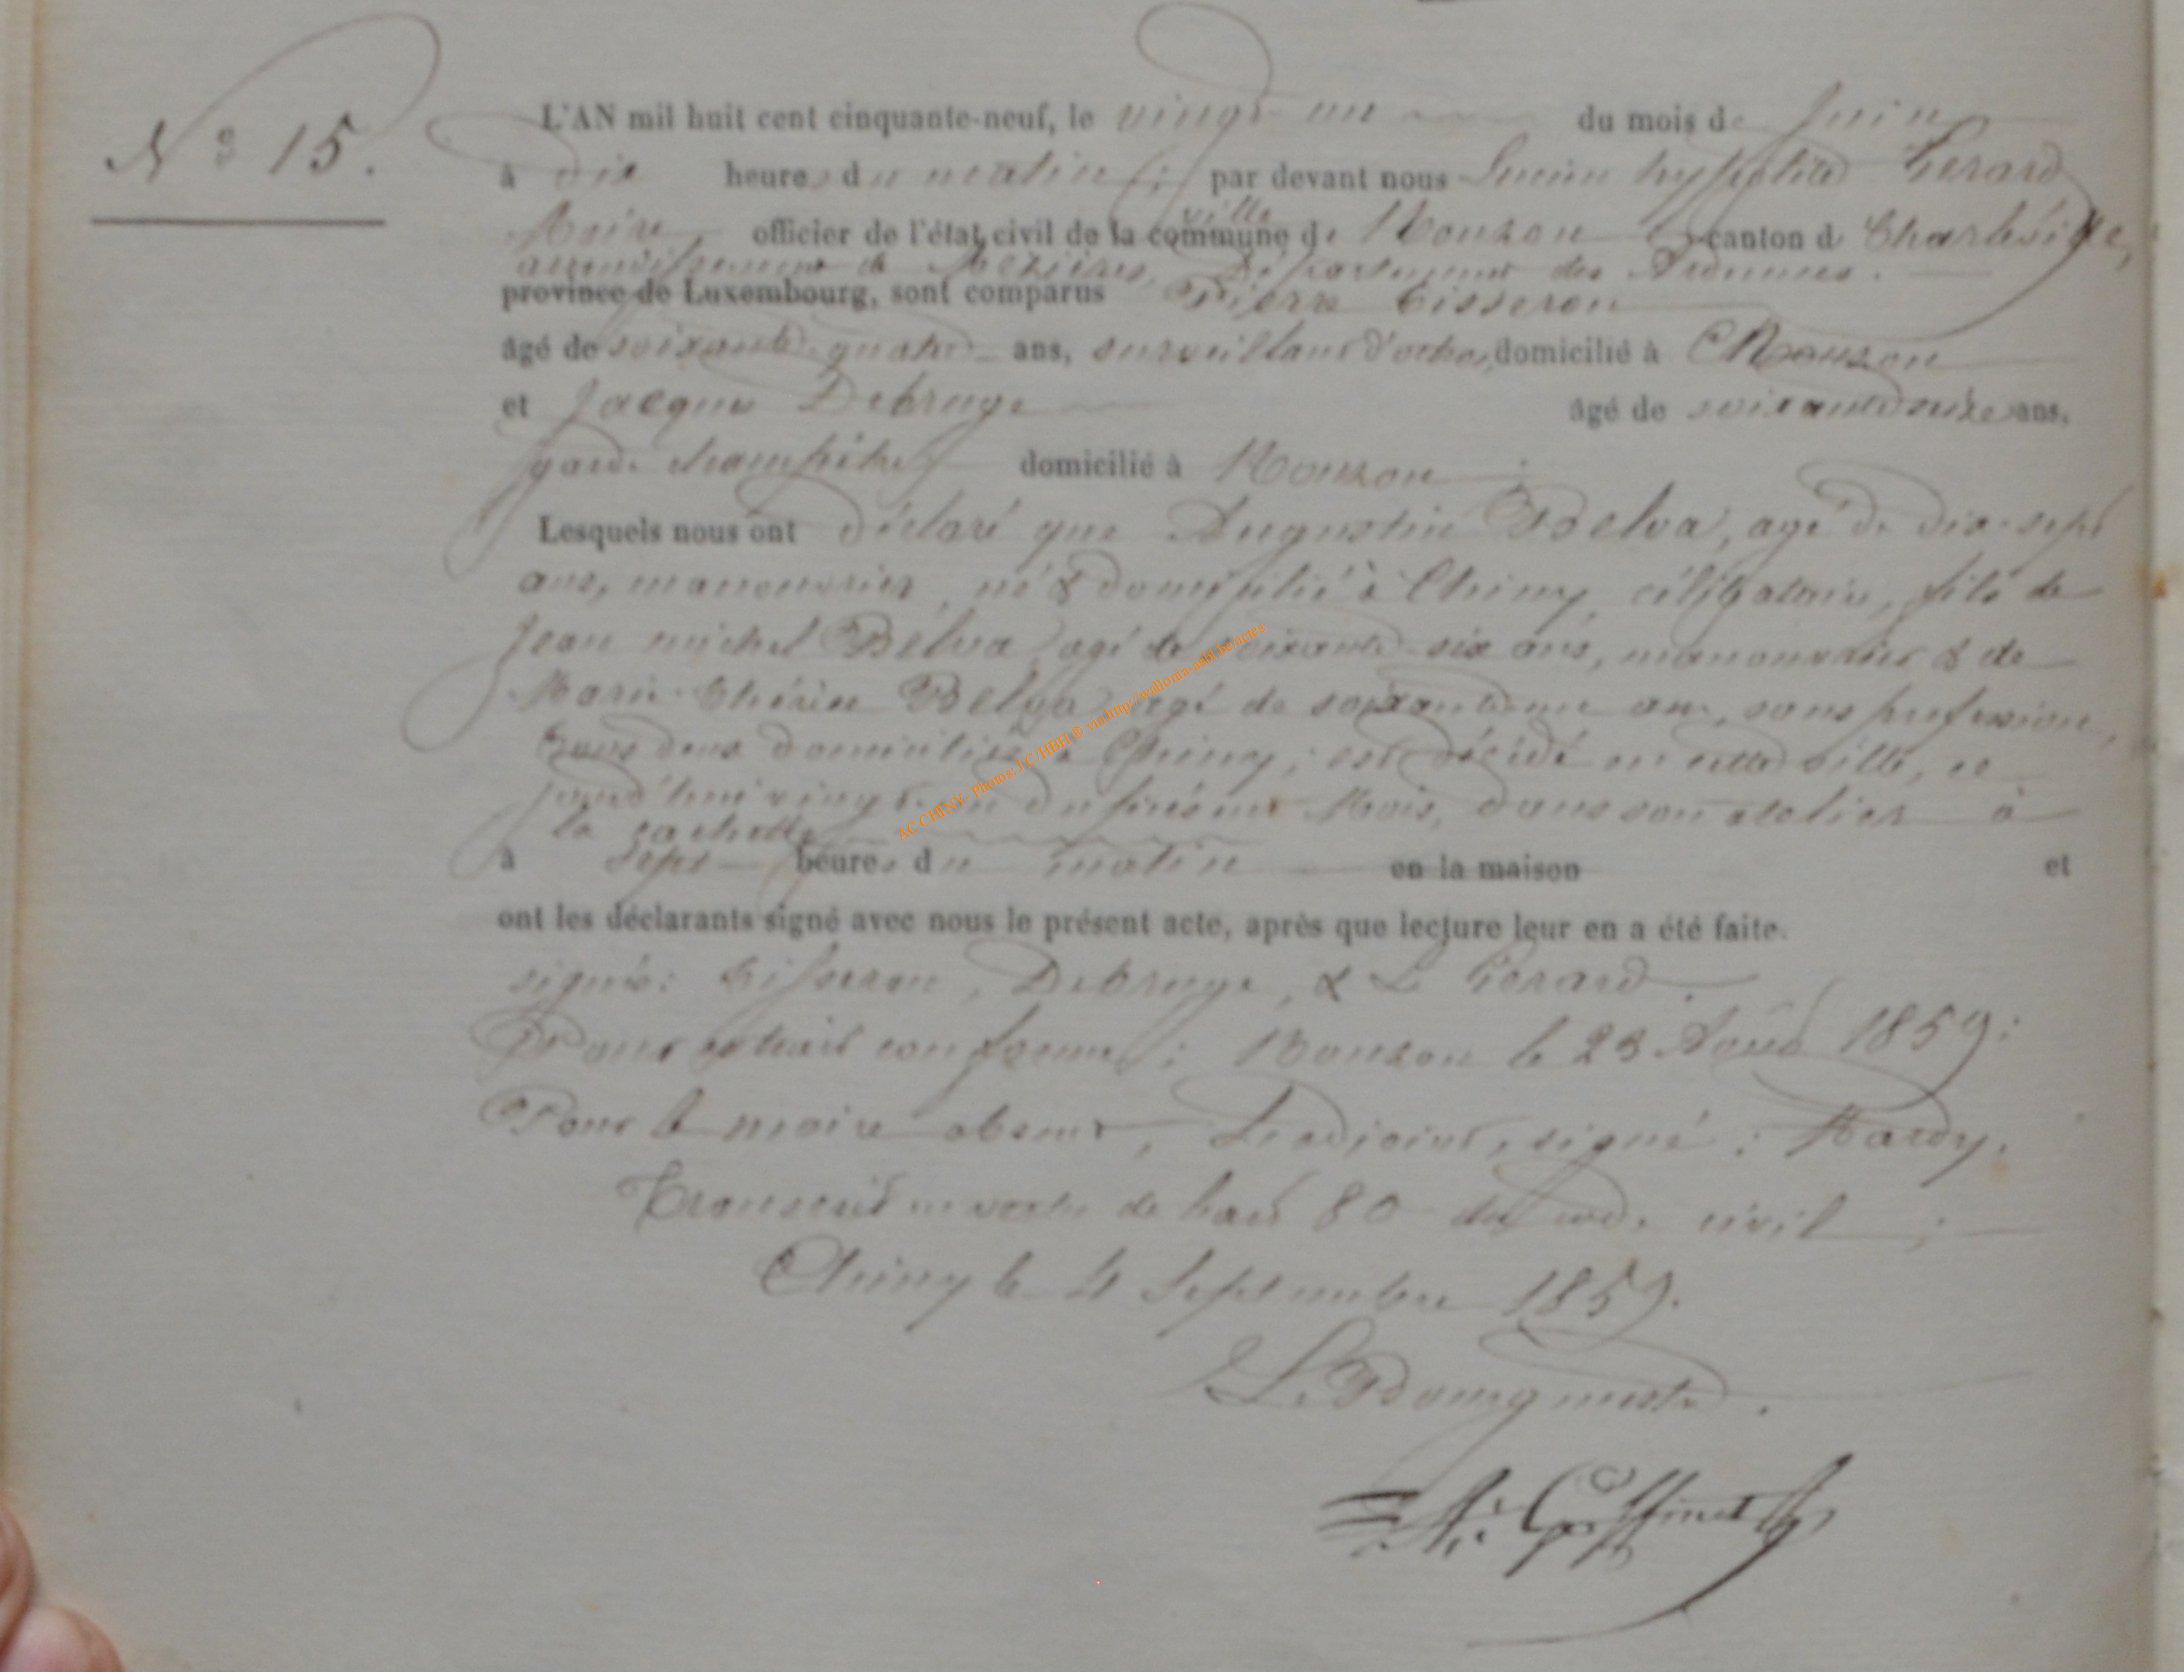 N° 15.
L'AN mil huit cent cinquante-neuf, le vingt un du mois de Juin
à dix heures du matin ; par devant nous Lucien hyppolite Gerard
Maire, officier de l'état civil de la commune ville de Mouzon canton de Charleville,
arrondissement de Mézières, Département des Ardennes.
province de Luxembourg, sont comparus Pierre Tisseron
âgé de soixante quatre ans, surveillant d'octroi, domicilié à Mouzon
et Jacques Debruge âgé de soixante seize ans,
garde champêtre domicilié à Mouzon ;
Lesquels nous ont déclaré que Augustin Belva, agé de dix-sept
ans, manouvrier, né & domicilié à Chiny, célibataire, fils de
Jean michel Belva agé de soixante six ans, manouvrier & de
Marie Thérèse Belva agé de soixante un ans, sans profession,
tous deux domiciliés à Chiny ; est décédé en cette ville, ce
jourd'hui vingt un du présent Mois, dans son atelier à
la
à sept heures du matin en la maison et
ont les déclarants signé avec nous le présent acte, après que lecture leur en a été faite.
signés: Tisseron, Debruge, & L Gerard.
Pour extrait conforme ; Mouzon le 23 Août 1859 :
Pour le maire absent, L'adjoint, signé : Hardy.
Transcrit en vertu de l'art 80 du code civil ;
Chiny le 4 Septembre 1859.
Le Bourgmestre.
AC CHINY- Photos: J.C. HBH ® via http://wallonia-asbl.be/actes